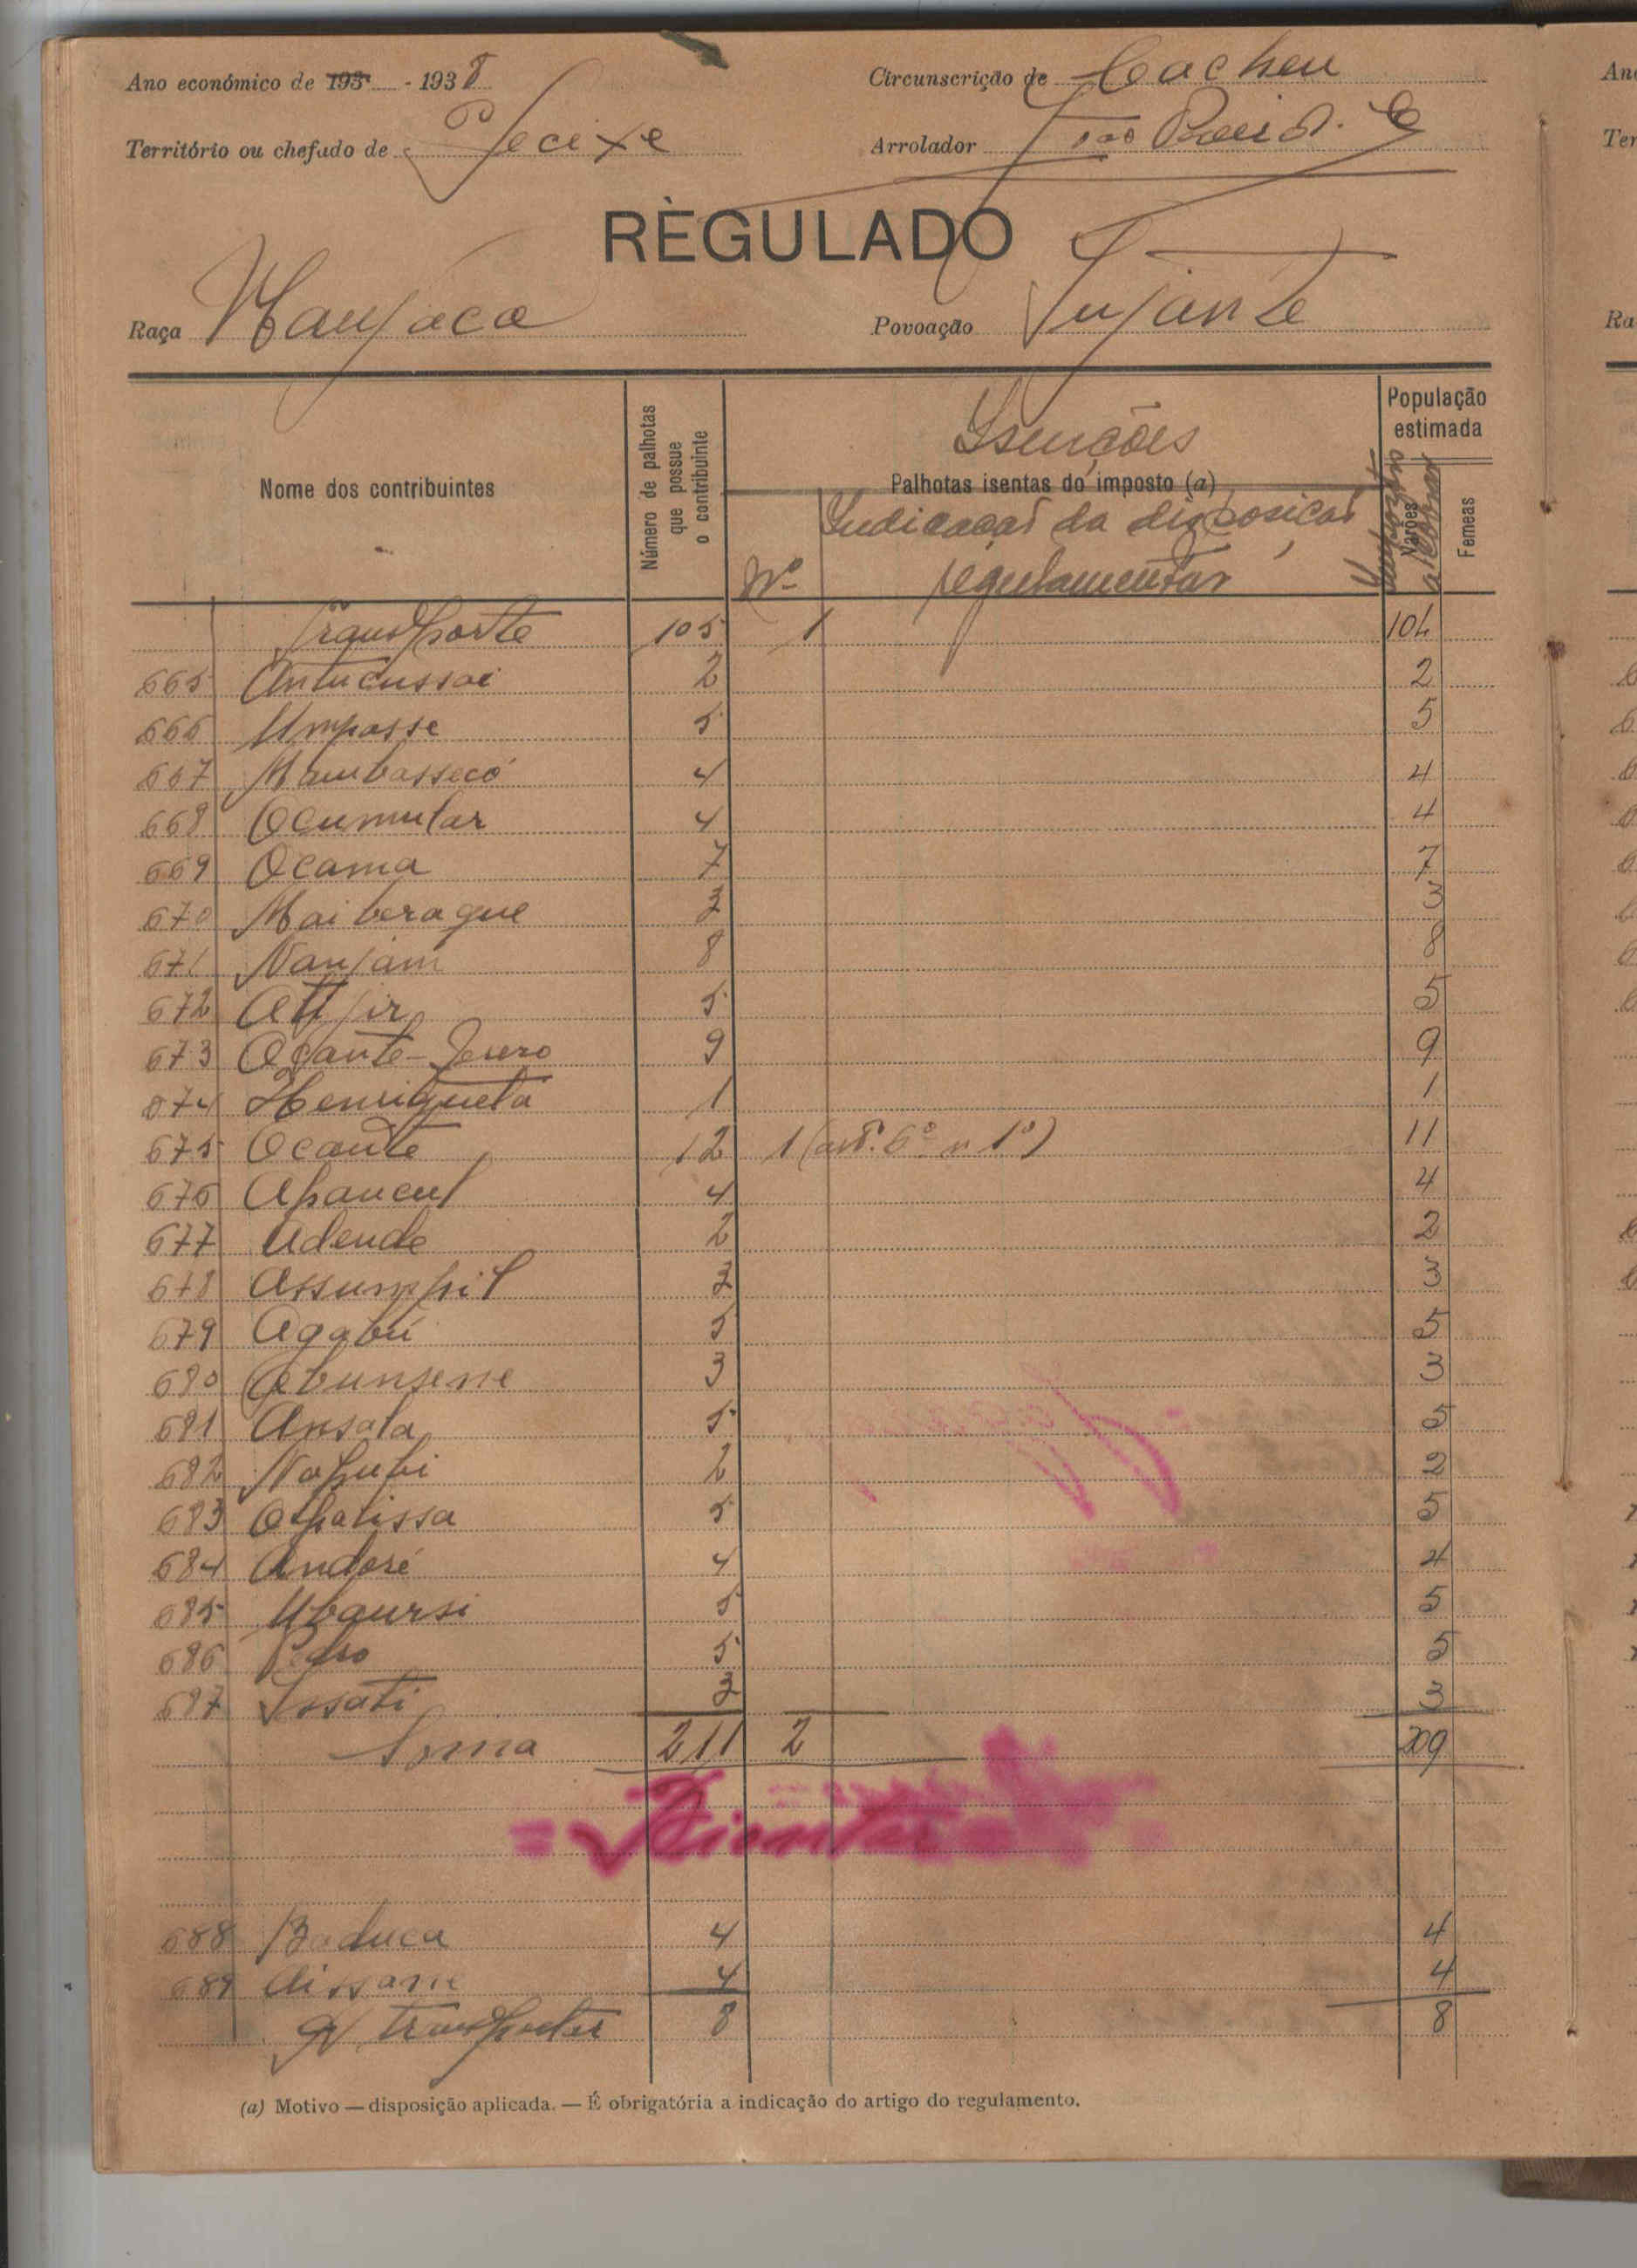 Ano económico de 193 - 1938
Circunscrição de Cacheu
Território ou chefado de Pecixe
Arrolador
RÈGULADO
Raça Manjaca
Povoação
Nome dos contribuintes
Número de palhotas que possue o contribuinte
Isenções
Palhotas isentas do imposto (a)
Nº Indicação da disposição regulamentar
População estimada
Varões
Femeas
Transporte 105 1 104
665 Antucussai 2 2
666 Umpasse 5 5
667 Mambassecó 4 4
668 Ocumular 4 4
669 Ocama 7 7
670 Maiberaque 3 3
671 Nanjam 8 8
672 5 5
673 9 9
674 Henriqueta 1 1
675 Ocante 12 1 (art. 6º n 1º) 11
676 Apancul 4 4
677 Udende 2 2
678 Assumpil 3 3
679 Agabú 5 5
680 3 3
681 Ansala 5 5
682 2 2
683 5 5
684 André 4 4
685 5 5
686 Pedro 5 5
687 Issati 3 3
Soma 211 2 209
688 Baduca 4 4
689 4 4
A transportar 8 8
(a) Motivo — disposição aplicada. — É obrigatória a indicação do artigo do regulamento.